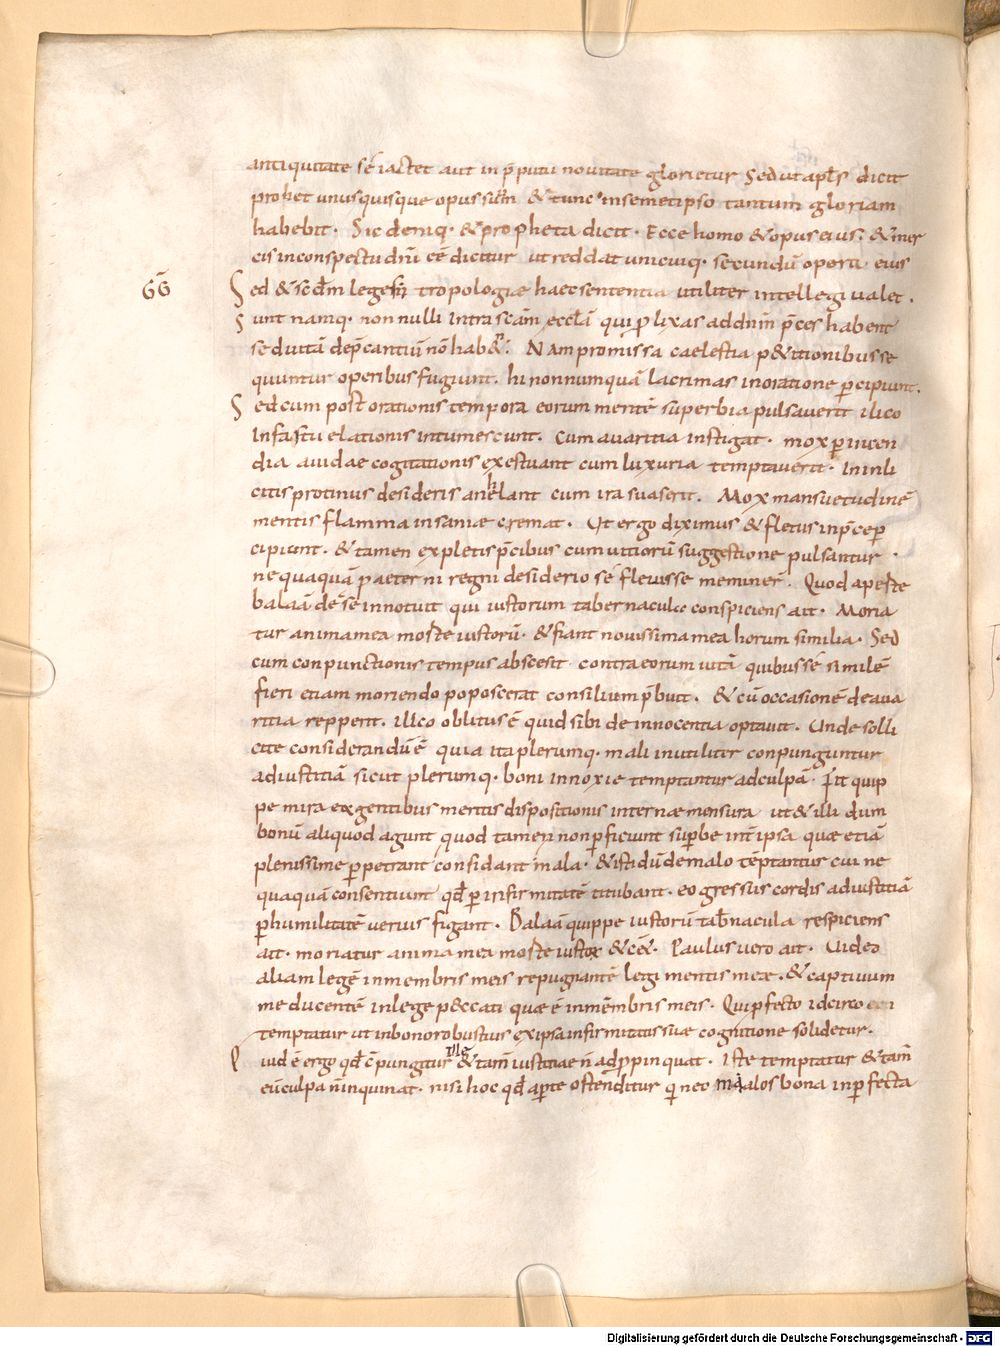 antiquitate sé iactet aut in p̄putii nouitate glorietur Sed ut apl̄s dicit
probet unusquisque opus suū & tunc in semetipso tantum gloriam
habebit. Sic deniq. & propheta dicit. Ecce homo & opus eius. & mer
cis in conspectu dn̄i eē dicitur ut reddat unicuiq. secundū opera eius
GG Sed & scd̄m legem tropologiae haec sententia utiliter intellegi ualet.
Sunt namq. non nulli intra scām eccl̄ā qui ꝓlixas ad dn̄m p̄ces habent
se d uitā dep̄cantiū nō hab&. Nam promissa caelestia p&itionibus se
quuntur operibus fugiunt. hi non numquā lacrimas in oratione ꝑcipiunt.
Sed cum post orationis tempora eorum mentē superbia pulsauerit ilico
In fastu elationis intumescunt. Cum auaritia instigat. mox ꝑ incen
dia auidae cogitationis exestuant cum luxuria temptauerit. In inli
citis protinus desideriis anhelant cum ira suaserit. Mox mansuetudinē
mentis flamma insaniae cremat. Ut ergo diximus & fletus in p̄ce ꝑ
cipiunt. & tamen expletis p̄cibus cum uitiorū suggestione pulsantur.
nequaquā p aeterni regni desiderio sé fleuisse meminer̄. Quod aperte
balaā de se innotuit qui iustorum tabernacula conspiciens ait. Moria
tur anima mea morte iustorū. & fiant nouissima mea horum similia. Sed
cum conpunctionis tempus abscesit contra eorum uitā quibus sé similē
fieri etiam moriendo poposcerat consilium p̄buit. & cū occasionē de aua
ritia repperit. ilico oblitus ē quid sibi de innocentia optauit. Unde solli
cite considerandū ē quia ita plerumq. mali inutiliter conpunguntur
ad iustitiā sicut plerumq. boni innoxie temptantur ad culpā. Fit quip
pe mira exigentibus meritis dispositionis internae mensura ut & illi dum
bonū aliquod agunt quod tamen non ꝑficiunt suꝑbe int̄ ipsa quae etiā
plenissime ꝑpetrant confidant mala. & isti dū de malo tēptantur cui ne
quaquā consentiunt qd̄ ꝑ infirmitatē titubant. eo gressus cordis ad iustitiā
ꝑ humilitatē uerius figant. Balaā quippe iustorū tab̄nacula respiciens
ait. moriatur anima mea morte iustoꝝ & cē&. Paulus uero ait. Uideo
aliam legē in membris meis repugnantē legi mentis meae. & captiuum
me ducentē in lege p&cati quae ē in mēmbris meis. Qui ꝓfecto idcirco
temptatur ut in bono robustius ex ipsa infirmitatis suae cognitione solidetur.
Quid ē ergo qd̄ c̄pungitur ille & tam̄ iustitiae n̄ adꝓpinquat. Iste temptatur & tam̄
eū culpa n̄ inquinat. nisi hoc qd̄ aꝑte ostenditur qi nec malos bona inꝑfecta
Digitalisierung gefördert durch die Deutsche Forschungsgemeinschaft - DFG